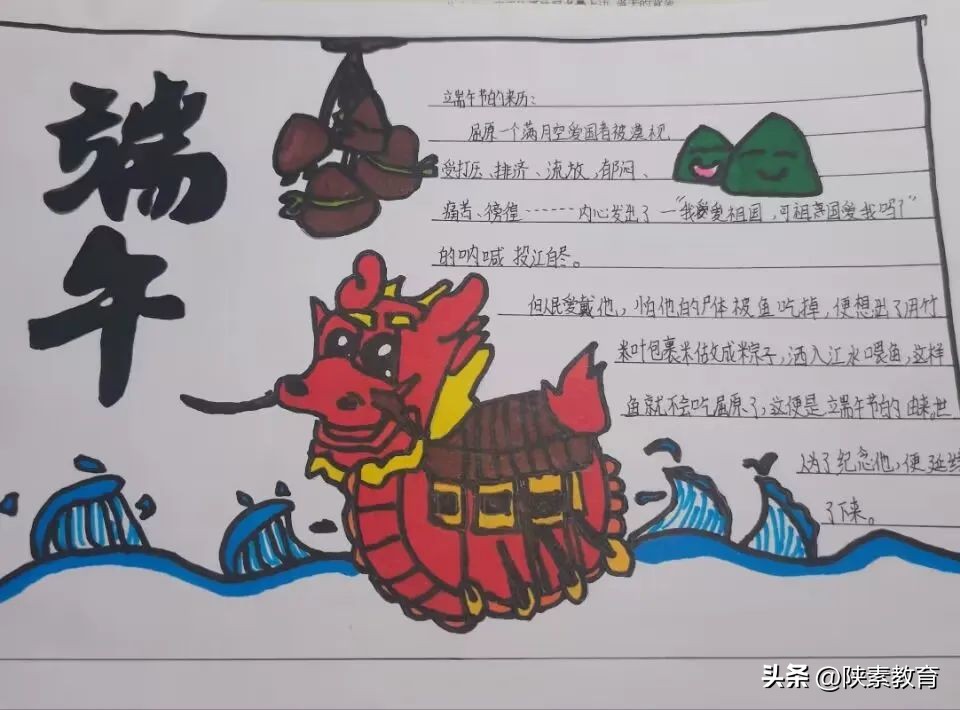 端午
端午节的来历：
屈原一个满月空爱国者被漠视
受打压、排济、流放、郁闷、
痛苦、徬徨……内心发出了一"我爱祖国，可祖国爱我吗？"
的呐喊 投江自尽。
但人民爱戴他，怕他的尸体被鱼吃掉，便想出了用竹
叶包裹米做成粽子，洒入江水喂鱼，这样
鱼就不会吃屈原了，这便是端午节的由来。世
人为了纪念他，便延续
了下来。
头条 @陕素教育